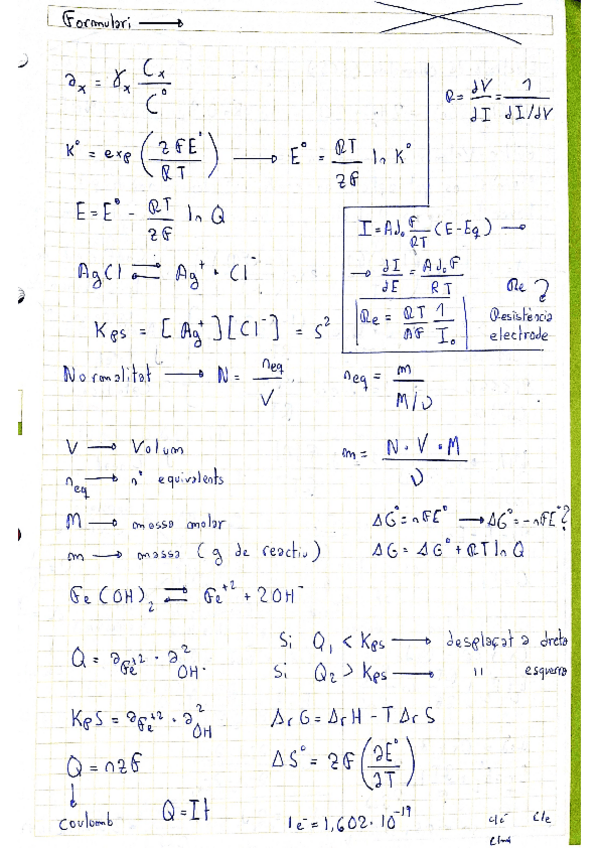 Formulari →
a_x = γ_x C_x / C°
R = ∂V/∂I = 1 / ∂I/∂V
K° = exp (zFE° / RT) → E° = RT/zF ln K°
E = E° - RT/zF ln Q
I = A j₀ F/RT (E - Eq) →
→ ∂I/∂E = A j₀ F / RT
AgCl ⇌ Ag⁺ + Cl⁻
Re
Kps = [Ag⁺][Cl⁻] = s²
Re = RT/AF 1/I₀
Resistència
electrode
Normalitat → N = n_eq / V
n_eq = m / M/ν
V → Volum
m = N · V · M / ν
n_eq → nº equivalents
M → massa molar
ΔG° = nFE° → ΔG° = -nFE°?
m → massa (g de reactiu)
ΔG = ΔG° + RT ln Q
Fe(OH)₂ ⇌ Fe⁺² + 2OH⁻
Si Q₁ < Kps → desplaçat a dreta
Q = a_Fe⁺² · a²_OH⁻
Si Q₂ > Kps → " esquerra
KpS = a_Fe⁺² · a²_OH
ΔrG = ΔrH - TΔrS
Q = nzF
ΔS° = zF (∂E°/∂T)
↓
coulomb
Q = It
1e⁻ = 1,602·10⁻¹⁹
c/e⁻ C/e